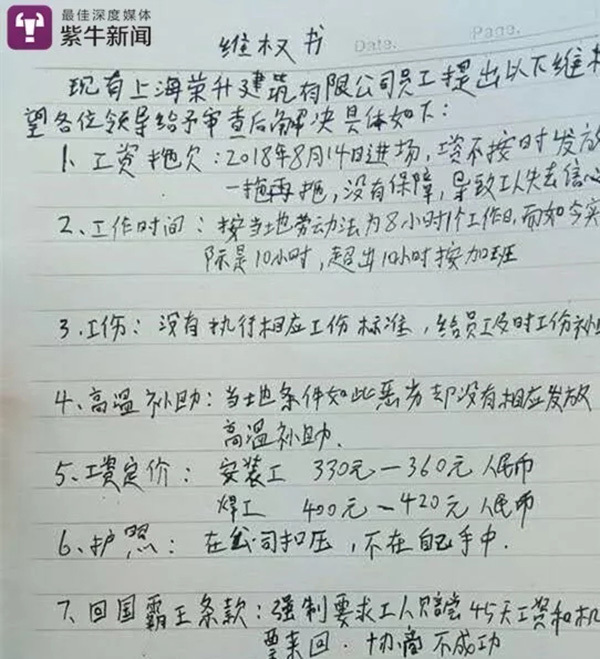 最佳深度媒体
紫牛新闻
维权书
Date.
Page.
现有上海荣升建筑有限公司员工提出以下维权
望各位领导给予审查后解决具体如下:
1、工资拖欠:2018年8月14日进场,工资不按时发放
一拖再拖,没有保障,导致工人失去信心
2、工作时间:按当地劳动法为8小时1个工作日,而如今实
际是10小时,超出10小时按加班
3、工伤:没有执行相应工伤标准,给员工及时工伤补助
4、高温补助:当地条件如此恶劣却没有相应发放
高温补助.
5、工资定价:安装工 330元—360元人民币
焊工 400元—420元人民币
6、护照:在公司扣压,不在自己手中.
7、回国霸王条款:强制要求工人赔偿45天工资和机
票来回.协商不成功